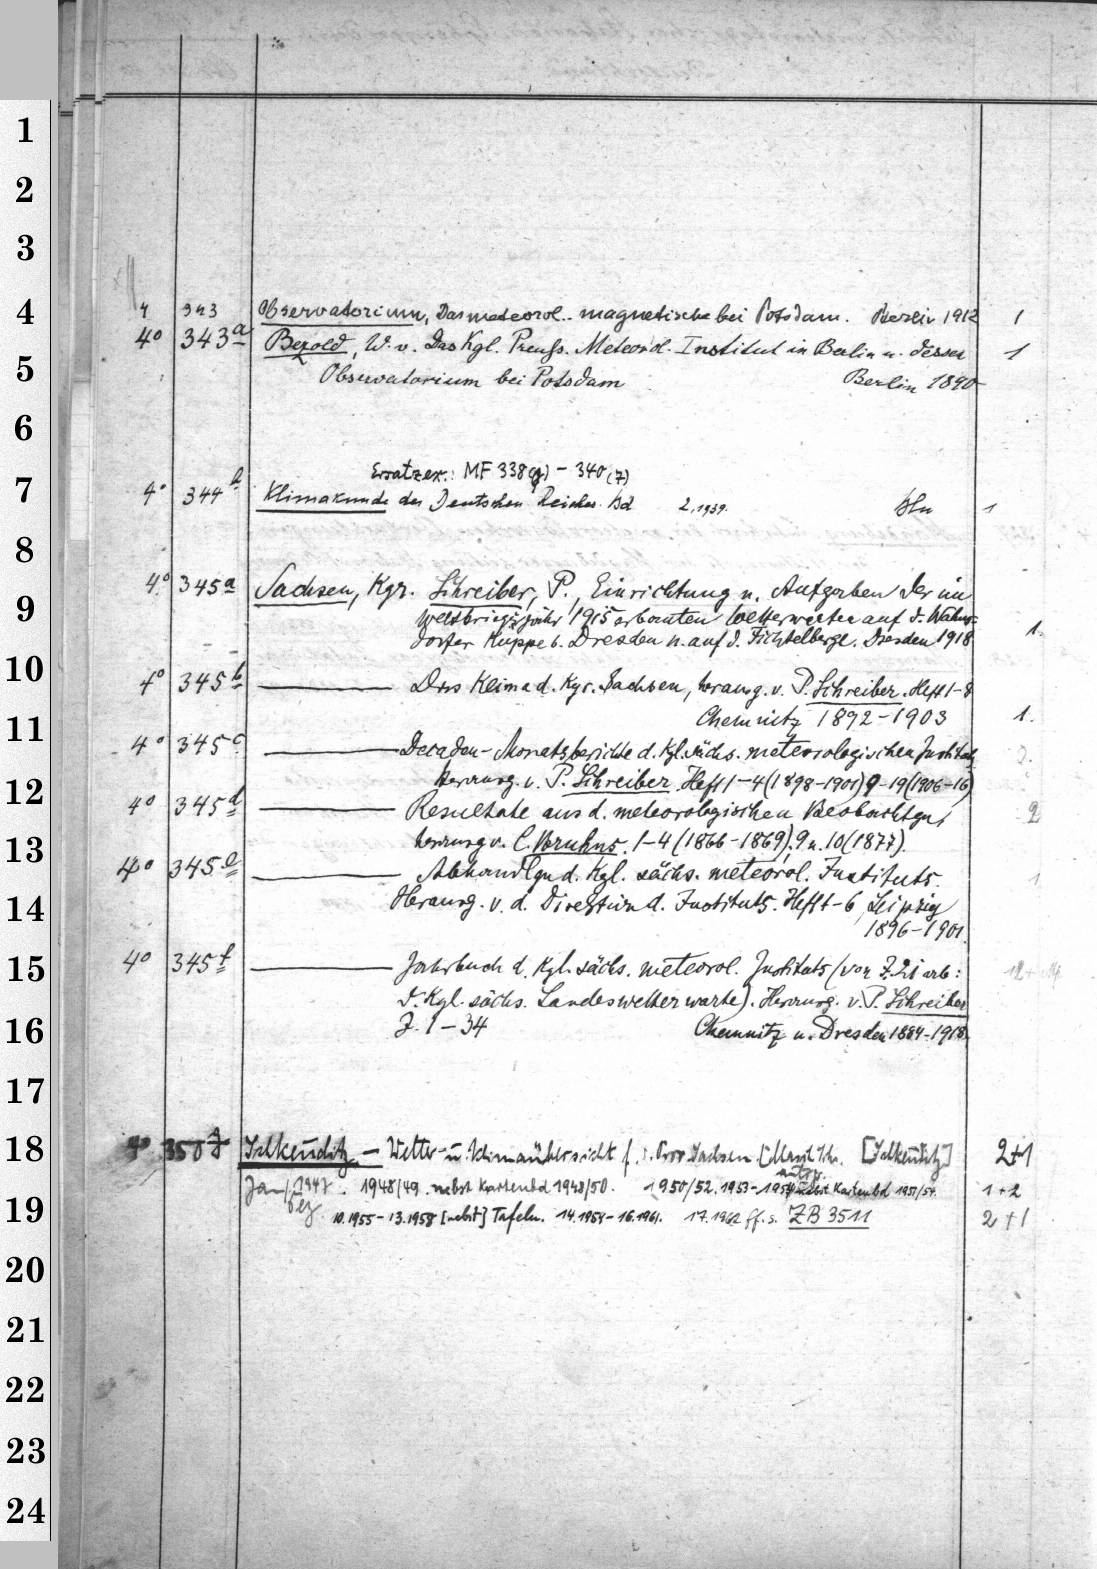 1
2
3
4
4 343 Observatorium, Das meteorol.-magnetische bei Potsdam. Berlin 1912 1
4° 343a Bezold, W. v. Das Kgl. Preuss. Meteorol. Institut in Berlin u. dessen 1
5
Observatorium bei Potsdam Berlin 1890
6
Ersatzex.: MF 338 - 340 (7)
7
4° 344b Klimakunde des Deutschen Reiches. Bd 2. 1939. Bln 1
8
4° 345a Sachsen, Kgr. Schreiber, P., Einrichtung u. Aufgaben der im
9
Weltkriegsjahr 1915 erbauten Wetterwarten auf d. Wahns-
dorfer Kuppe b. Dresden u. auf d. Fichtelberge. Dresden 1918 1.
10
4° 345b ——— Das Klima d. Kgr. Sachsen, herausg. v. P. Schreiber. Heft 1-8
Chemnitz 1892-1903 1.
11
4° 345c ——— Decaden-Monatsberichte d. Kgl. sächs. meteorologischen Instituts 2.
12
herausg. v. P. Schreiber. Heft 1-4 (1898-1901) 9-19 (1906-16)
4° 345d ——— Resultate aus d. meteorologischen Beobachtgn, 2
13
herausg v. C. Bruhns. 1-4 (1866-1869). 9 u. 10 (1877).
4° 345e ——— Abhandlgn d. Kgl. sächs. meteorol. Instituts. 1
14
Herausg. v. d. Direktion d. Instituts. Heft 1-6 Leipzig
1896-1901.
15
4° 345f ——— Jahrbuch d. Kgl. sächs. meteorol. Instituts (von J. 21 ab:
d. Kgl. sächs. Landeswetterwarte). Herausg. v. P. Schreiber
16
J. 1-34 Chemnitz u. Dresden 1884-1918.
17
18
4° 350 Schkeuditz. — Wetter- u. Klimaübersicht f. Prov Sachsen. [Schkeuditz] 2+1
Jan/ 1947. 1948/49. nebst Kartenbd 1948/50. 1950/52. 1953-1954 nebst Kartenbd 1951/54. 1+2
19
Dez. 10.1955-13.1958 [nebst] Tafeln. 14.1959-16.1961. 17.1962 ff. s. ZB 3511 2+1
20
21
22
23
24